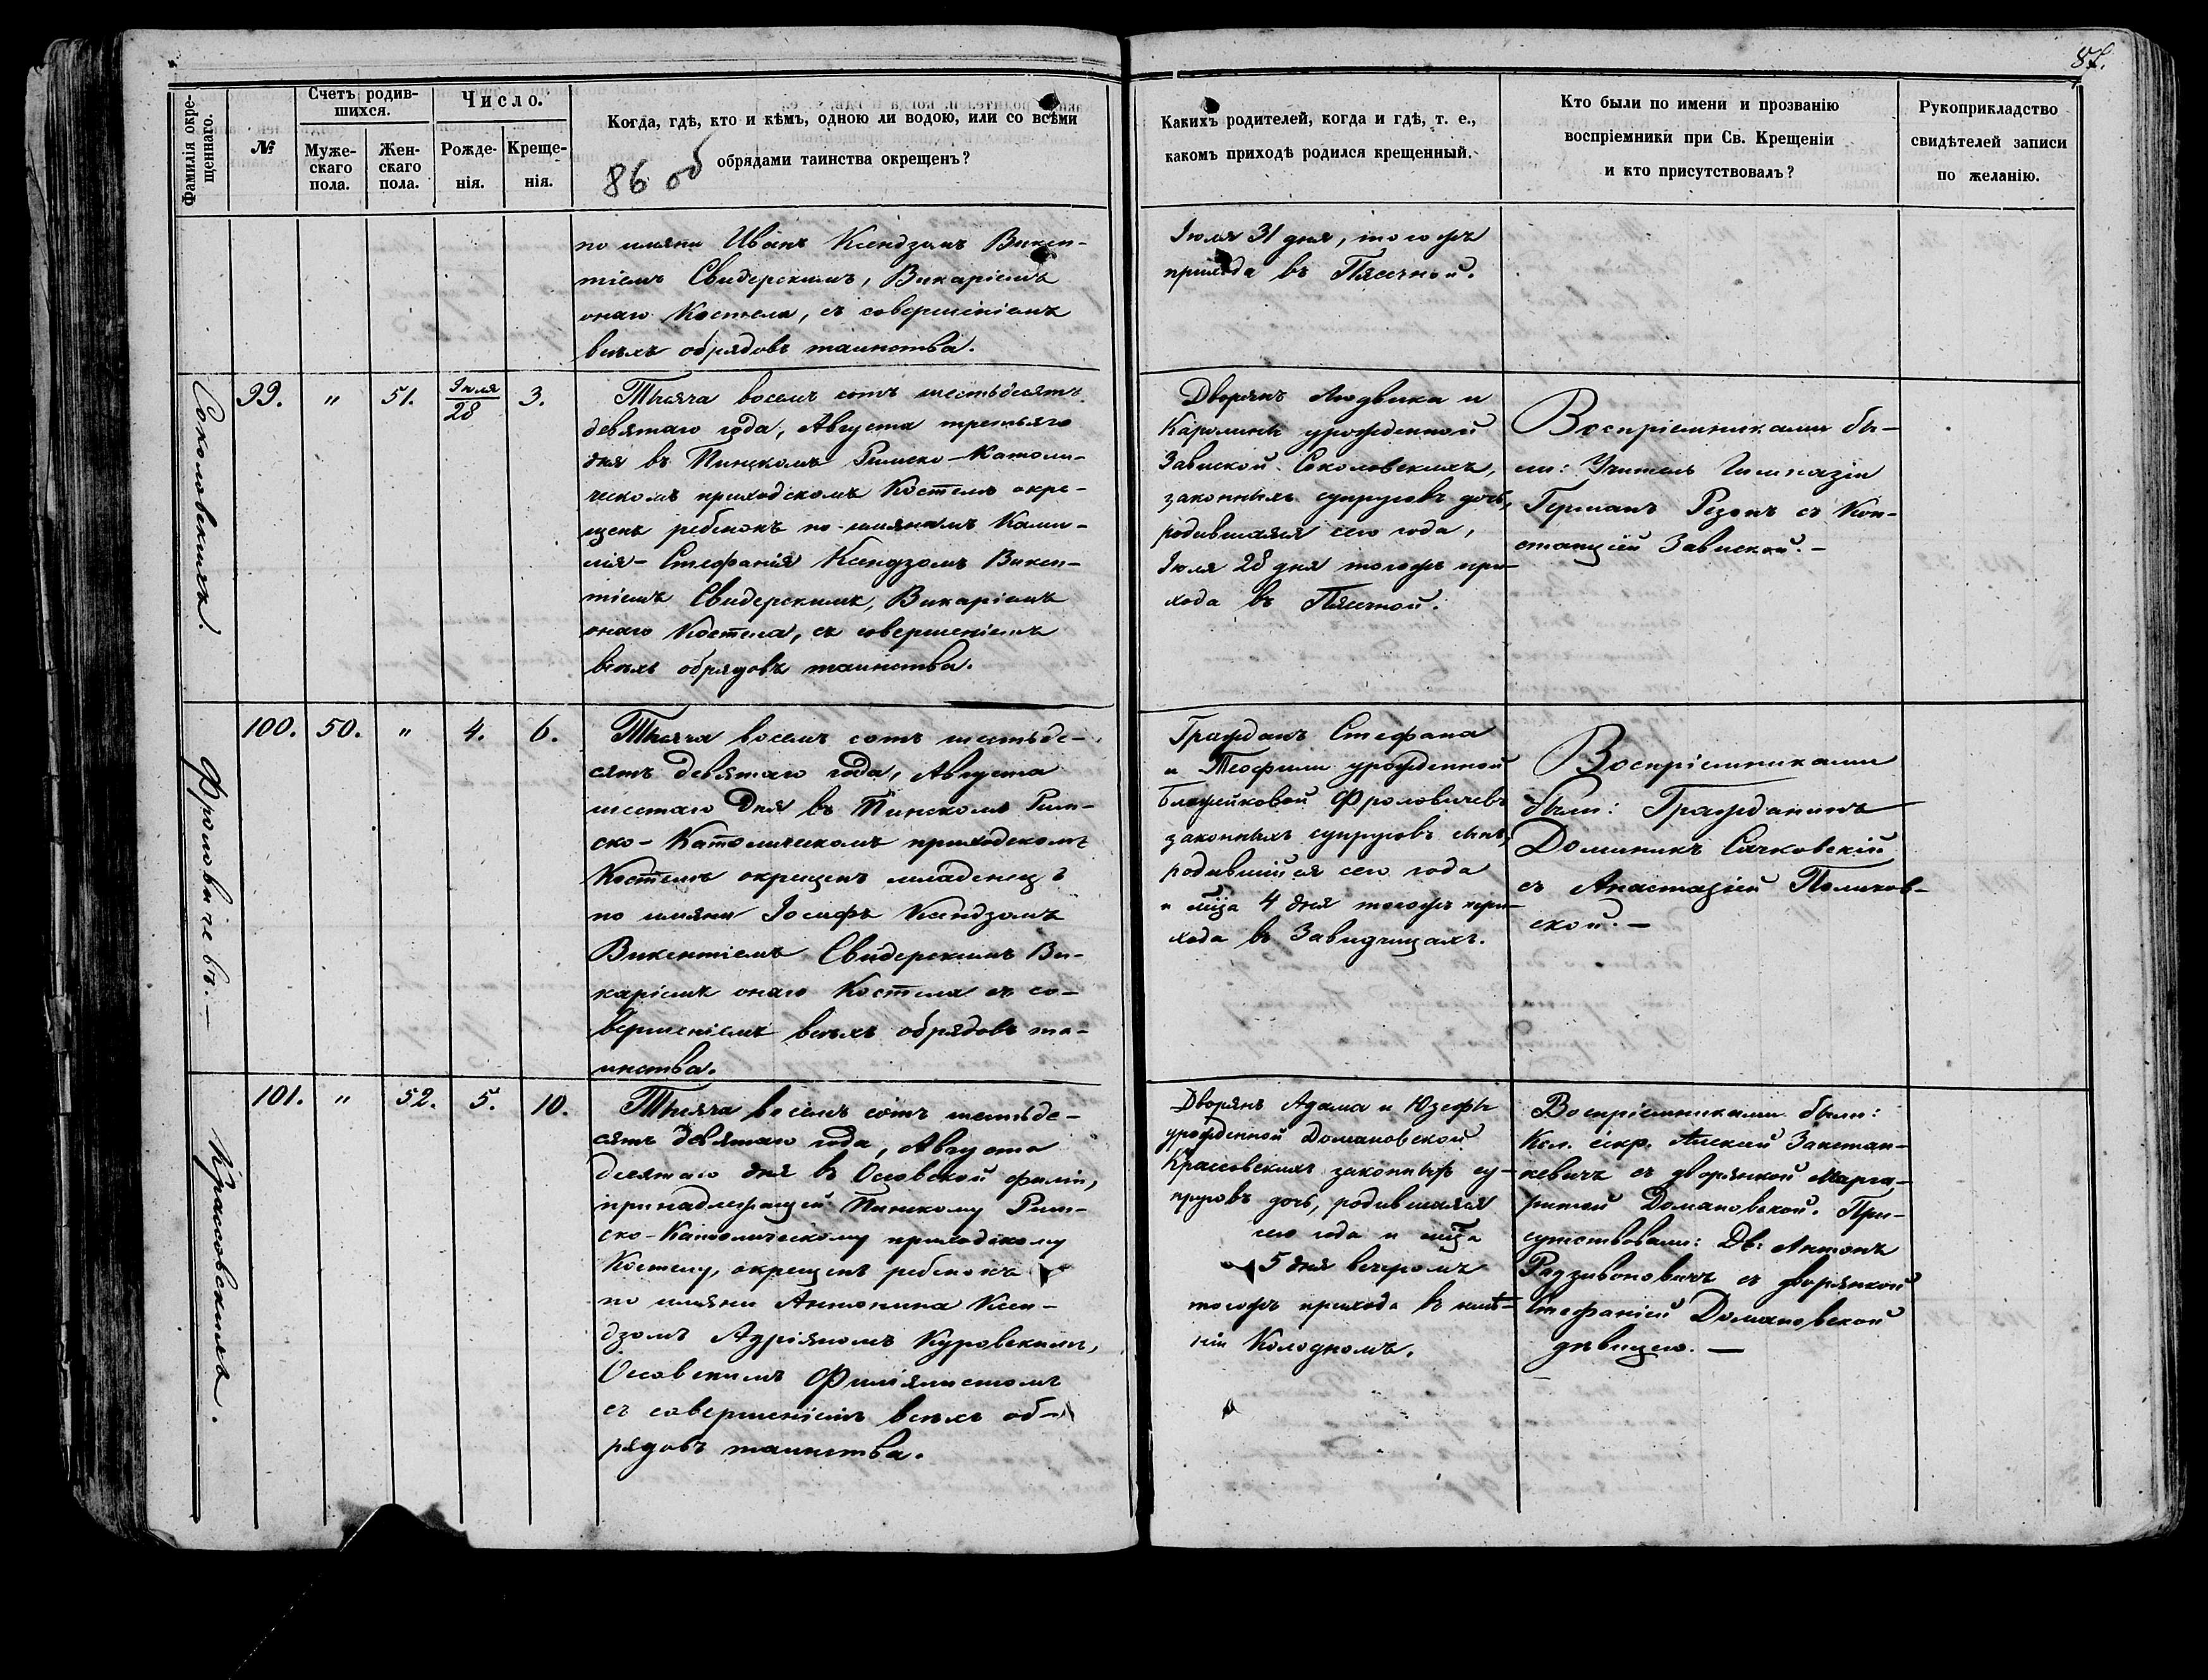 87.
Фамилія окре-
щеннаго.
№
Счетъ родив-
шихся.
Муже-
скаго
пола.
Жен-
скаго
пола.
Число.
Рожде-
нія.
Креще-
нія.
Когда, гдѣ, кто и кѣмъ, одною ли водою, или со всѣми
обрядами таинства окрещенъ?
86 об
Какихъ родителей, когда и гдѣ, т. е.,
какомъ приходѣ родился крещенный.
Кто были по имени и прозванію
воспріемники при Св. Крещеніи
и кто присутствовалъ?
Рукоприкладство
свидѣтелей записи
по желанію.
по имяни Иванъ Ксендзомъ Викен-
тіемъ Свидерскимъ, Викаріемъ
онаго Костела, съ совершеніемъ
всѣхъ обрядовъ таинства.
Іюля 31 дня, тогожъ
прихода въ Пясечной.
Соколовскихъ.
99.
"
51.
Іюля
28
3.
Тысяча восемь сотъ шестьдесятъ
девятаго года, Августа третьяго
дня въ Пинскомъ Римско-Католи-
ческомъ приходскомъ Костелѣ окре-
щенъ ребенокъ по имянамъ Ками-
лія-Стефанія Ксендзомъ Викен-
тіемъ Свидерскимъ, Викаріемъ
онаго Костела, съ совершеніемъ
всѣхъ обрядовъ таинства.
Дворянъ Людвика и
Каролины урожденной
Завиской Соколовскихъ,
законныхъ супруговъ дочь,
родившаяся сего года,
Іюля 28 дня тогожъ при-
хода въ Пясечной.
Воспріемниками бы-
ли: Учитель Гимназіи
Германъ Резонъ съ Кон-
станціей Завиской.-
Фроловичевъ.-
100.
50.
"
4.
6.
Тысяча восемь сотъ шестьде-
сятъ девятаго года, Августа
шестаго дня въ Пинскомъ Рим-
ско-Католическомъ приходскомъ
Костелѣ окрещенъ младенецъ
по имяни Іосифъ Ксендзомъ
Викентіемъ Свидерскимъ Ви-
каріемъ онаго Костела съ со-
вершеніемъ всѣхъ обрядовъ та-
инства.
Гражданъ Стефана
и Теофили урожденной
Блажейковой Фроловичевъ
законныхъ супруговъ сынъ,
родившійся сего года
и мѣца 4 дня тогожъ при-
хода въ Завидчицахъ.
Воспріемниками
были: Гражданинъ
Доминикъ Сачковскій
съ Анастазіей Полихов-
ской.-
Красовскихъ.
101.
"
52.
5.
10.
Тысяча восемь сотъ шестьде-
сятъ девятаго года, Августа
десятаго дня въ Осовской филіи,
принадлежащей Пинскому Рим-
ско-Католическому приходскому
Костелу, окрещенъ ребенокъ
по имяни Антонина Ксен-
дзомъ Адріяномъ Куровскимъ,
Осовскимъ Филіялистомъ
съ совершеніемъ всѣхъ об-
рядовъ таинства.
Дворянъ Адама и Юзефы
урожденной Домановской
Красовскихъ законныхъ су-
пруговъ дочь, родившаяся
сего года и мѣца
5 дня вечеромъ
тогожъ прихода въ имѣ-
ніи Колодномъ.
Воспріемниками были:
Кол. секр. Алексей Занстан-
кевичъ съ дворянкой Марга-
ритой Домановской. При-
сутствовали: Дв. Антонъ
Радзивоновичъ съ дворянкой
Стефаніей Домановской
дѣвицею.-